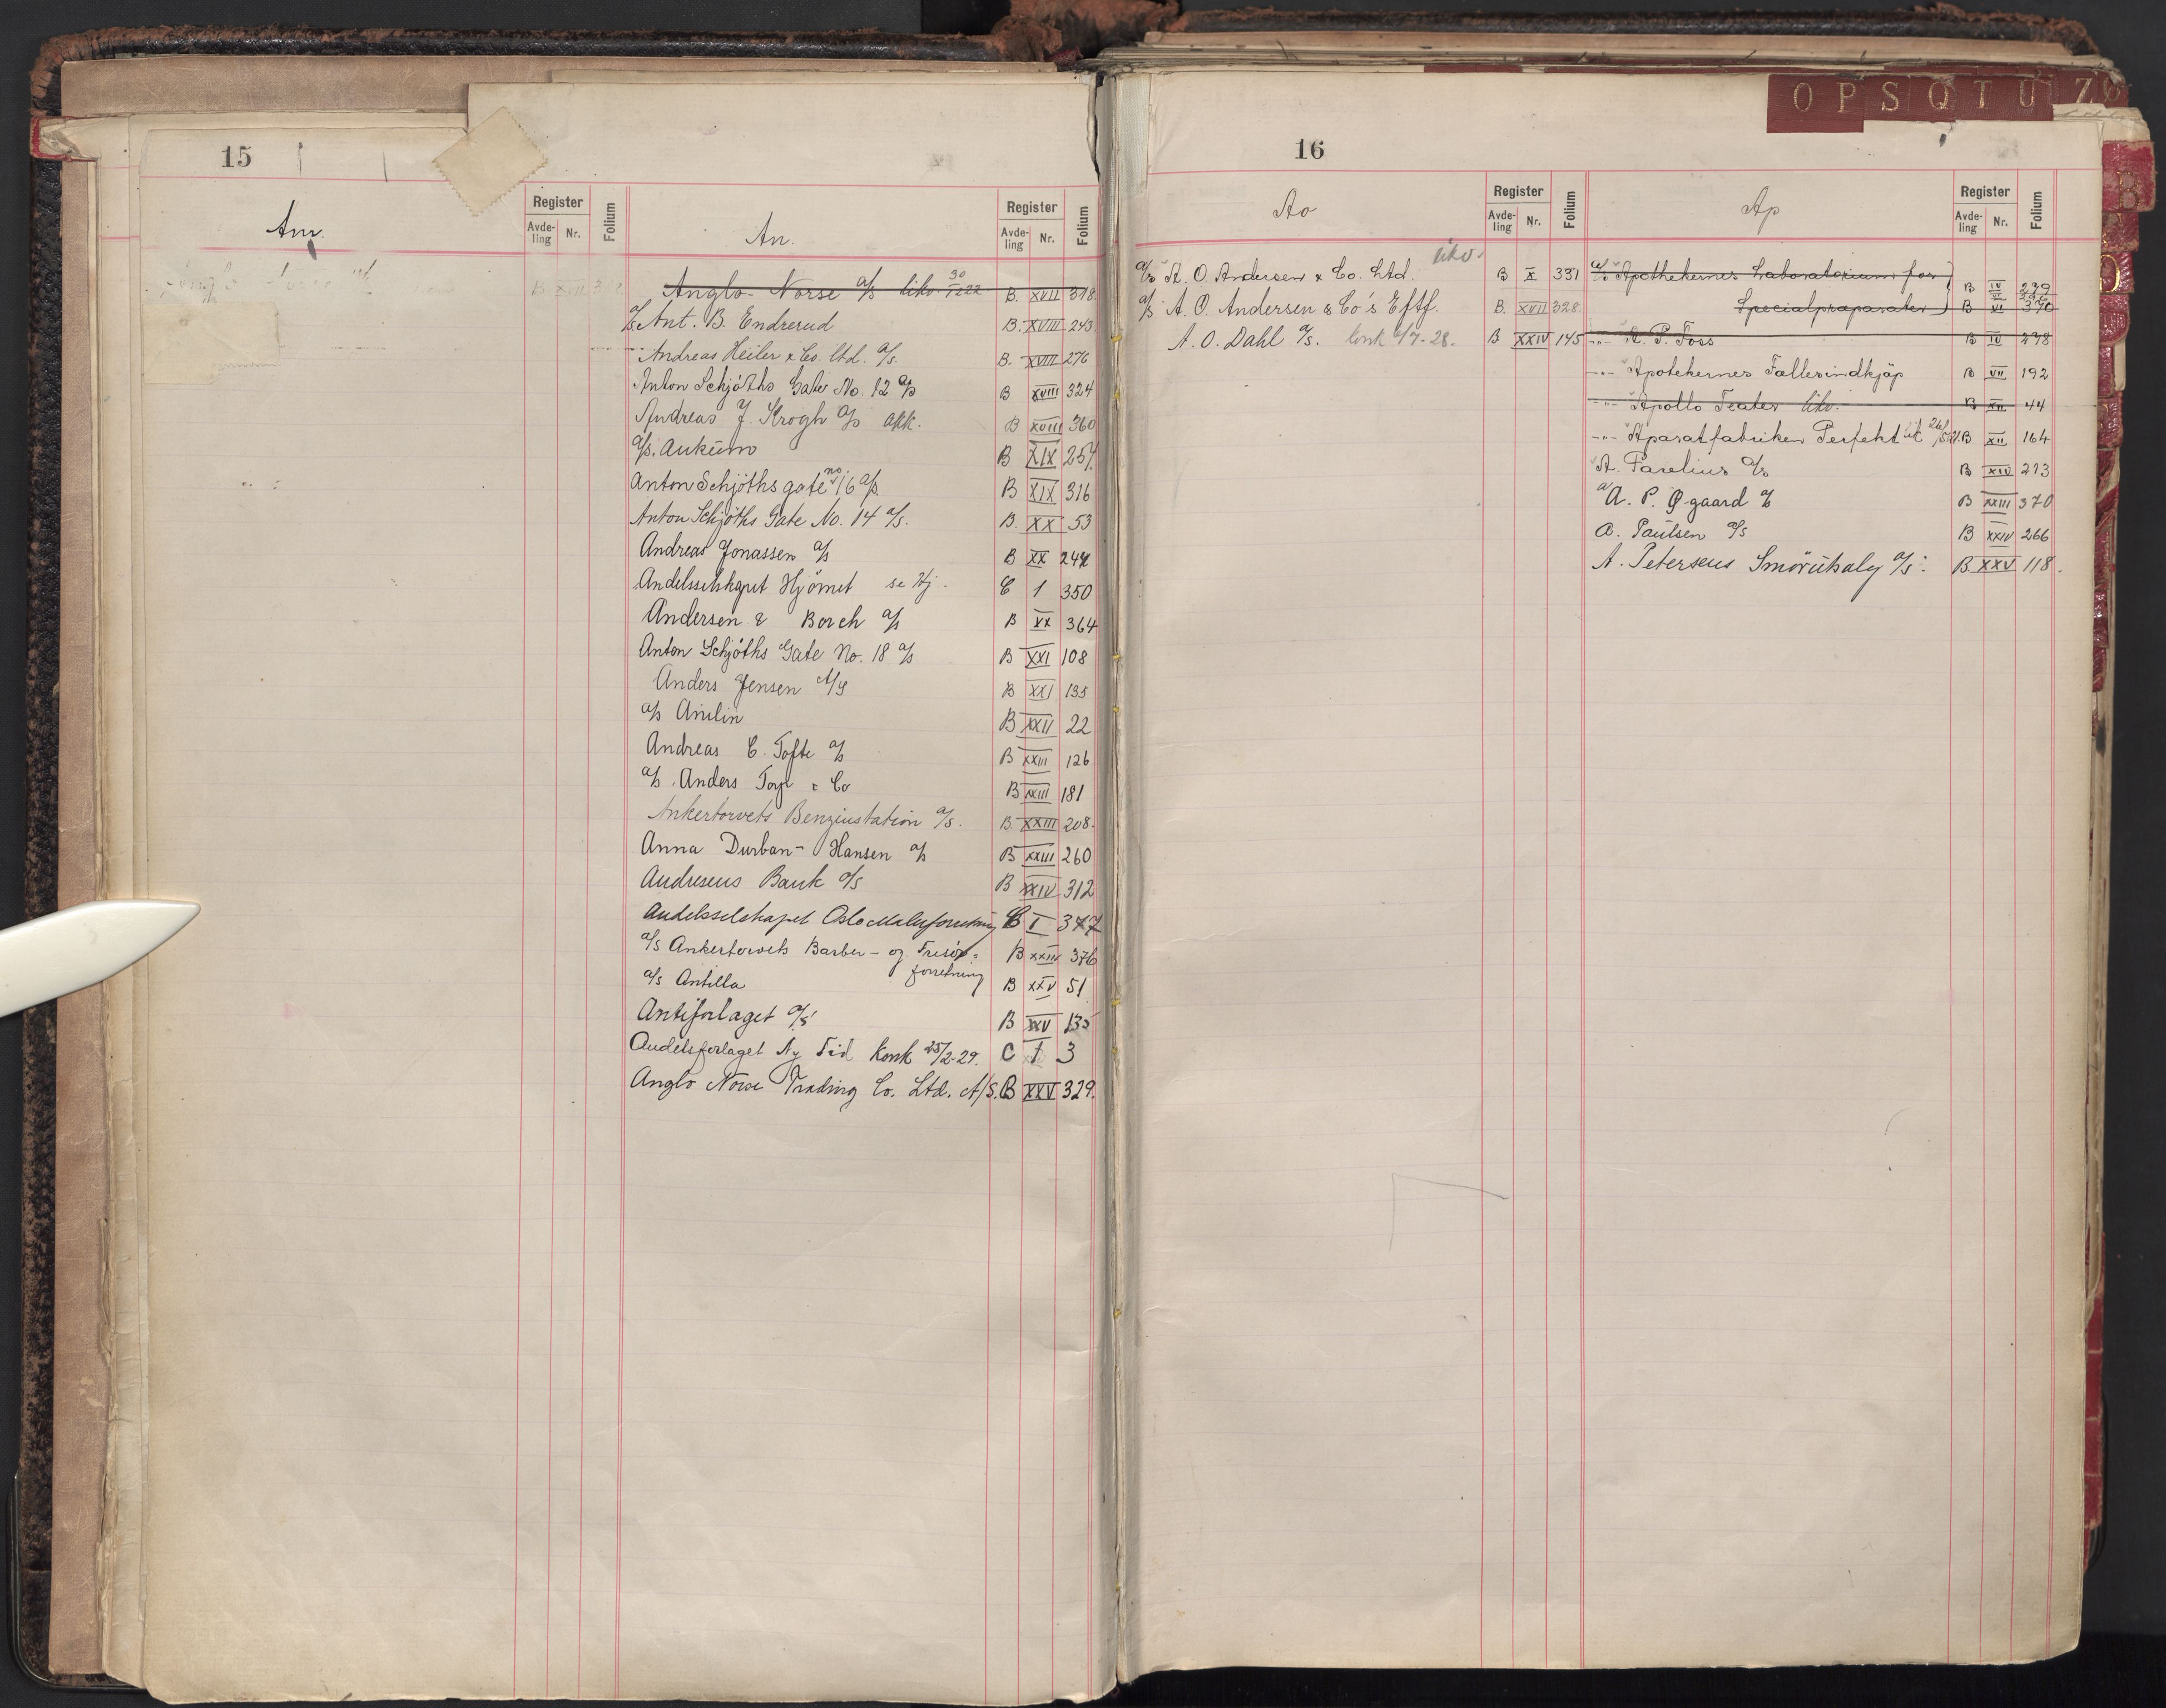 15
Am.
Register
Avde-ling Nr. Folium
An.
Register
Avde-ling Nr. Folium
Anglo-Norse a/s likv. 30/12 22 B. XVII 318
a/s Ant. B. Endrerud B. XVIII 243
Andreas Heiler & Co. Ltd. a/s. B. XVIII 276
Anton Schjöths Gate No. 12 a/s B XVIII 324
Andreas J. Krogh a/s akk. B XVIII 360
a/s. Ankum B XIX 257
Anton Schjöths gate no 16 a/s. B XIX 316
Anton Schjöths Gate No. 14 a/s. B. XX 53
Andreas Jonassen a/s B XX 244
Andelsselskapet Hjömet se Hj. C 1 350
Andersen & Borch a/s B XX 364
Anton Schjöths Gate No. 18 a/s B XXI 108
Anders Jensen A/S B XXI 135
a/s Anilin B XXII 22
Andreas C. Tofte a/s B XXIII 126
a/s. Anders & Co B XXIII 181
Ankertorvets Benzinstation a/s. B. XXIII 208.
Anna Durban-Hansen a/s B XXIII 260
Andresens Bank a/s B XXIV 312
Andelsselskapet Oslo C I 347
a/s Ankertorvets Barber- og Frisör- B XXIV 376
forretning
a/s Antilla B XXV 51
Antiforlaget a/s B XXV 135
Andelsforlaget Ny Tid Konk 25/2-29. C 1 3
Anglo Norse Trading Co. Ltd. A/S. B XXV 329.
O P S Q T U Z
16
Ao
Register
Avde-ling Nr. Folium
Ap
Register
Avde-ling Nr. Folium
likv.
a/s A. O. Andersen & Co. Ltd. B X 331
a/s A. O. Andersen & Co's Eftf. B. XVII 328.
A. O. Dahl a/s. konk 4/7-28. B XXIV 145
a/s Apothekernes Laboratorium for B IV 239
Specialpræparater B VI 370
-"- A. P. Foss B IV 278
-"- Apotekernes Fællesindkjøp B VII 192
-"- Apollo Teater likv. B XII 44
-"- Aparatfabriken Perfekt B XII 164
A. Parelius a/s B XIV 213
A. P. Øgaard a/s B XXIII 370
A. Paulsen a/s B XXIV 266
A. Petersens Smörutsalg a/s. B. XXV 118.